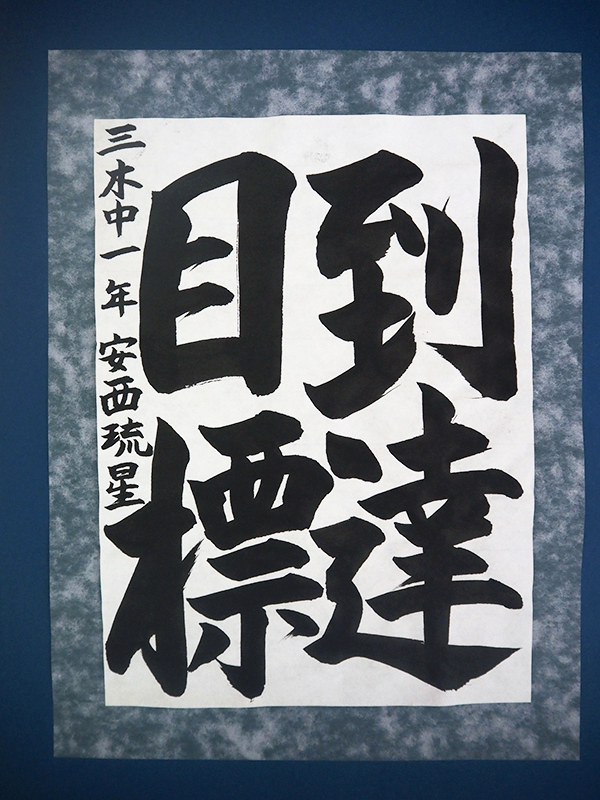 到達
目標
三木中一年 安西琉星